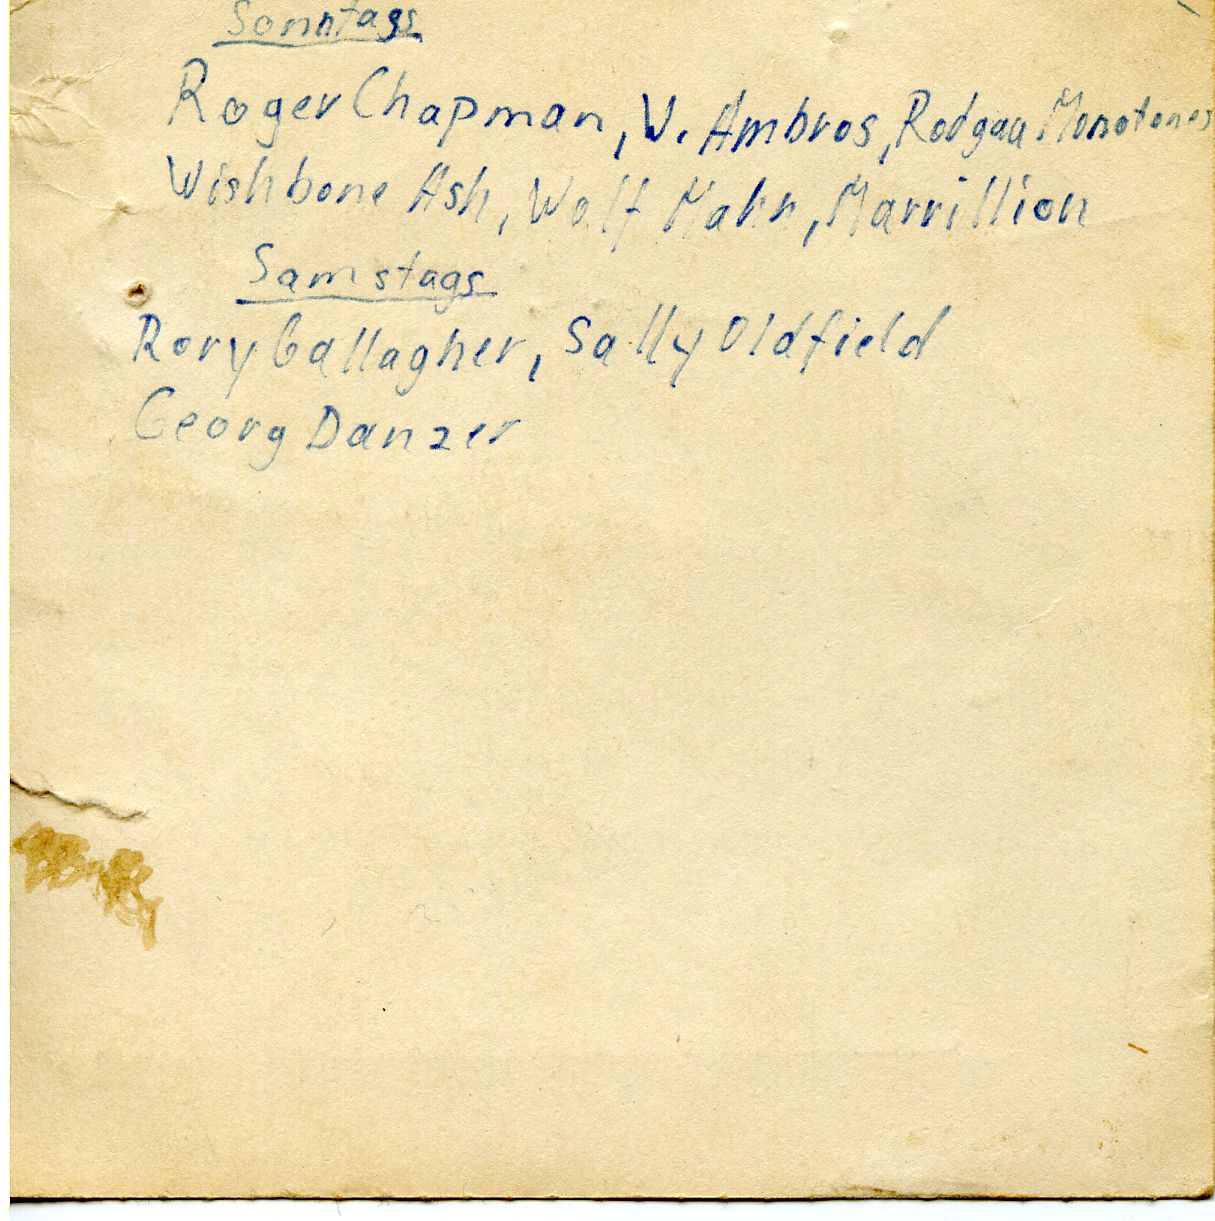 Sonntags
Roger Chapman, W. Ambros, Rodgau Monotones
Wishbone Ash, Wolf Mahn, Marrillion
Samstags
Rory Gallagher, Sally Oldfield
Georg Danzer